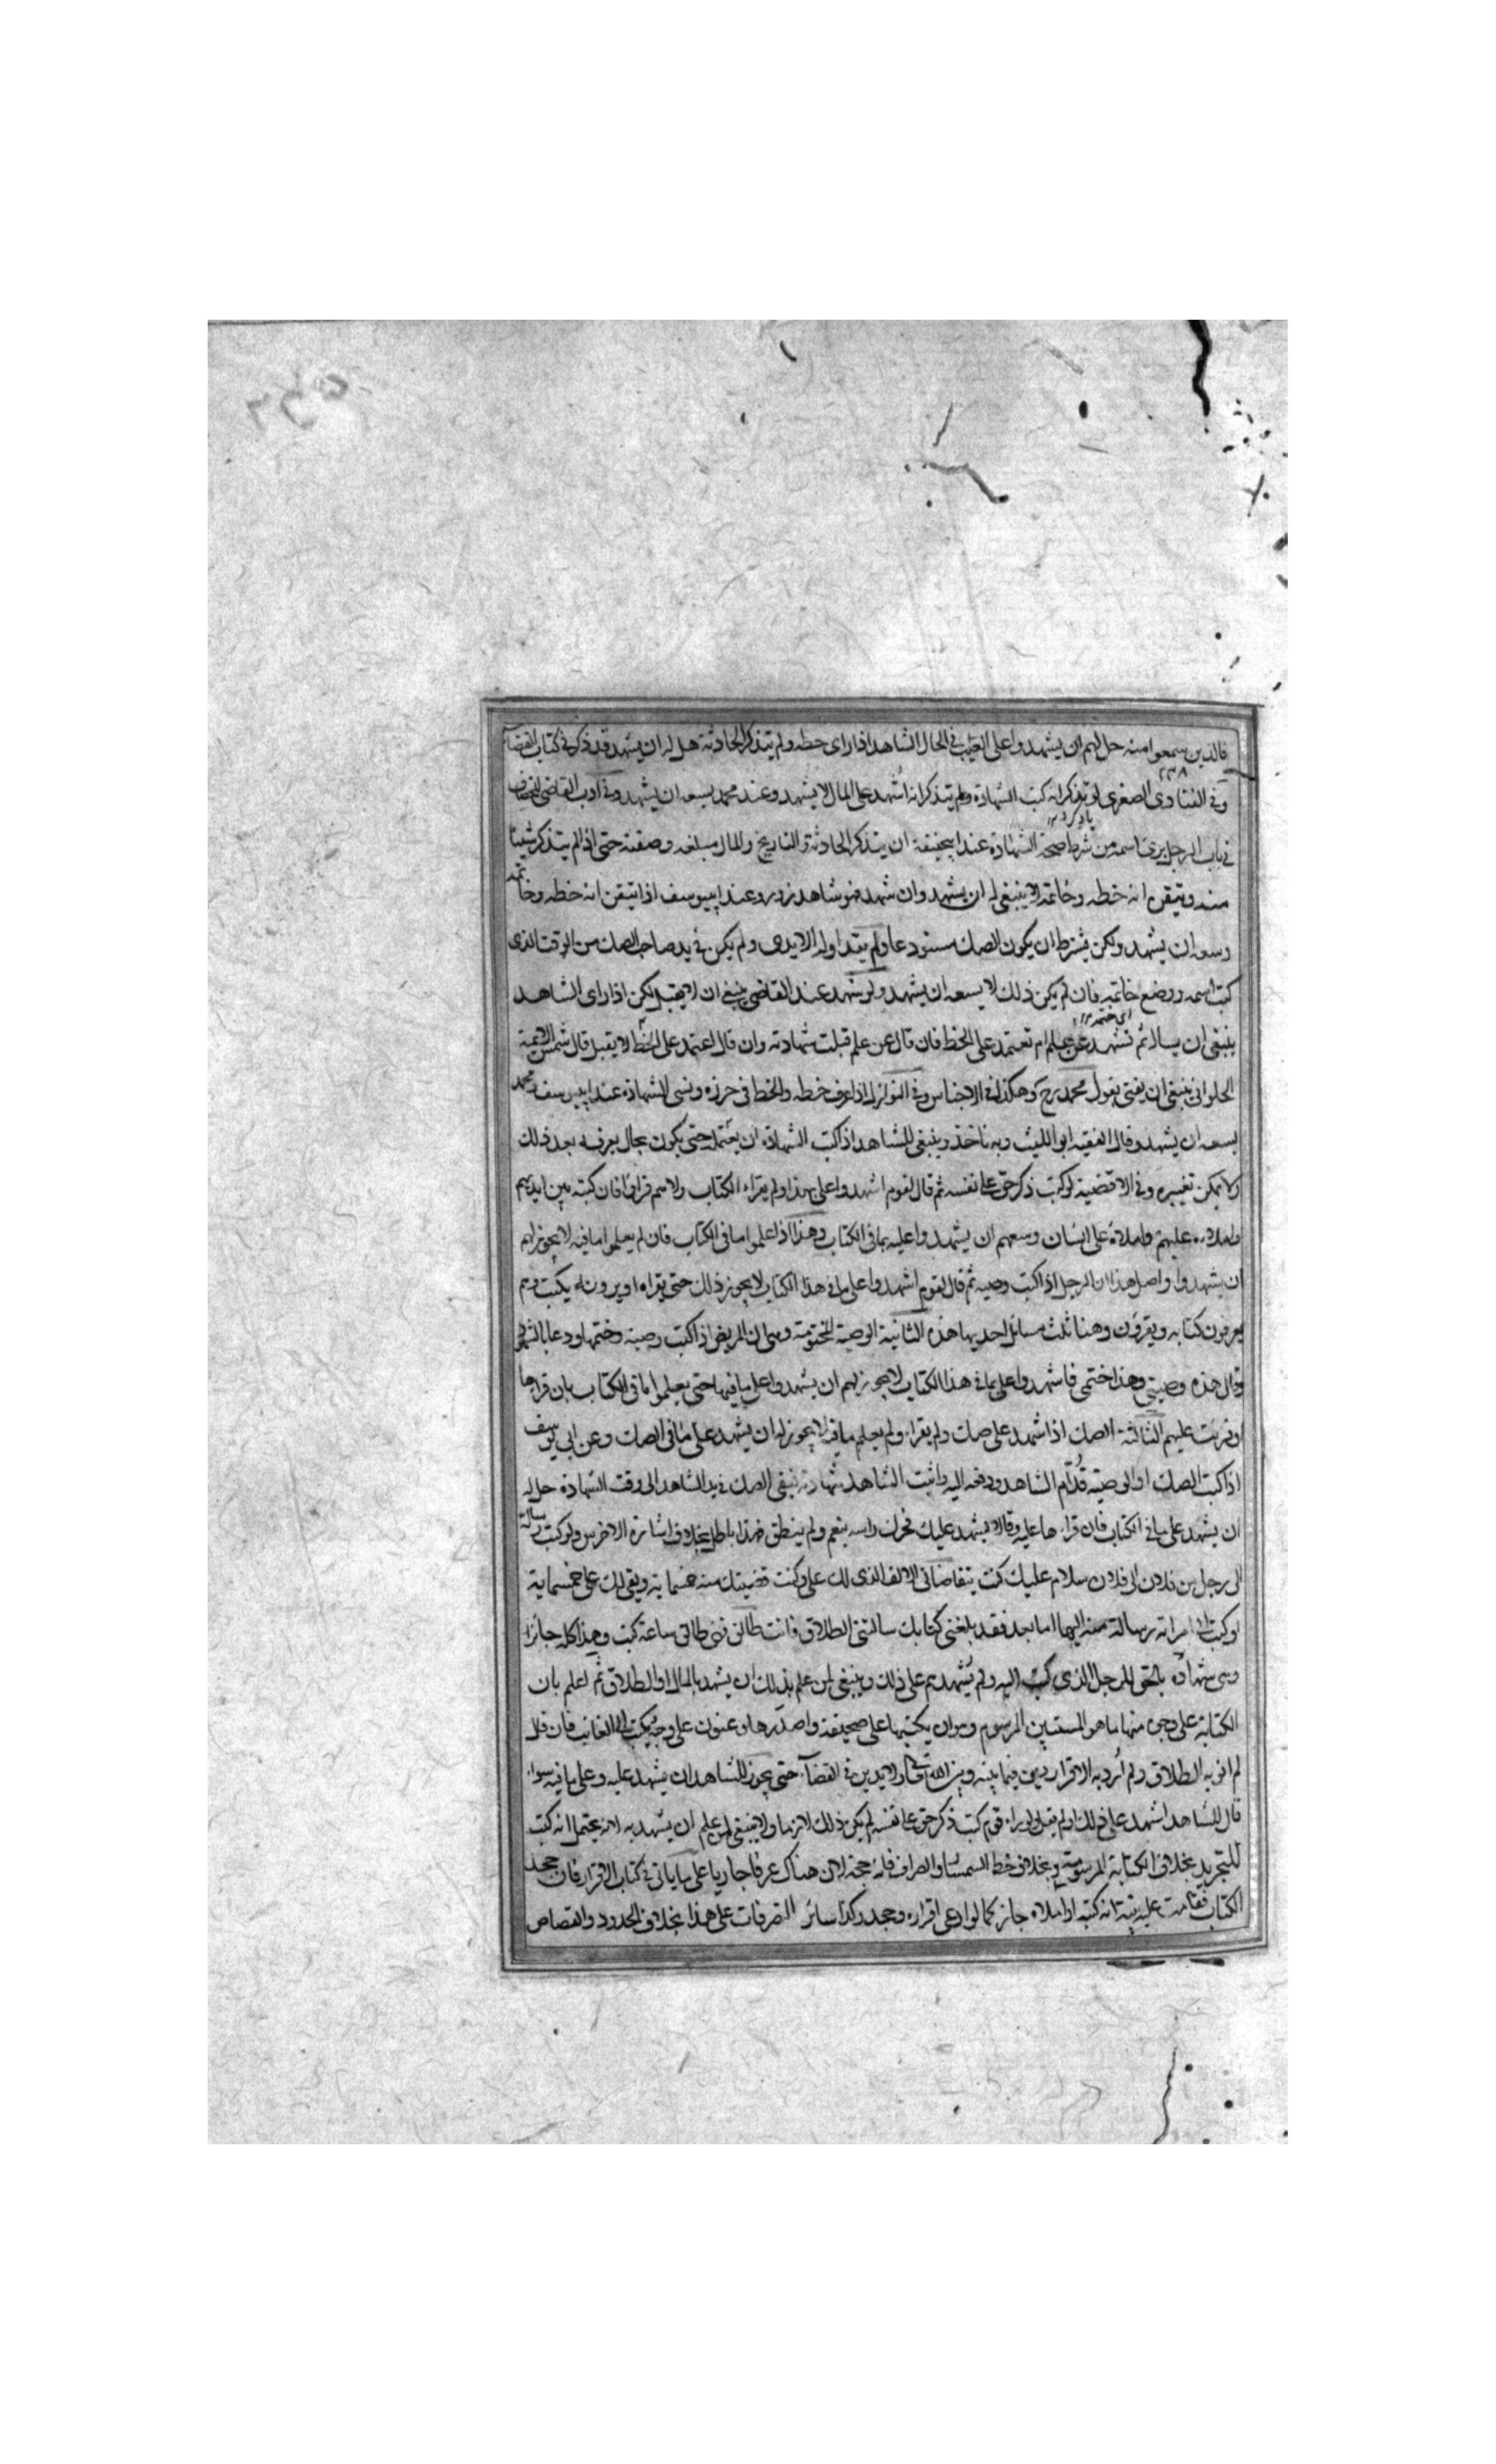 فالذين سمعوا منه حل لهم ان يشهدوا على الغيب فى الحال الشاهد اذا راى خطه ولم يتذكر الحادثة هل له ان يشهد قد ذكر فى كتاب القضاء
وفى الفتاوى الصغرى لو تذكر انه كتب الشهادة ولم يتذكر انه اشهد على المال لا يشهد وعند محمد يسعه ان يشهد وفى ادب القاضى للخصاف
فى باب الرجل يرى اسمه من شرط صحة الشهادة عند ابيحنيفة ان يتذكر الحادثة والتاريخ والمال مبلغه وصفته حتى اذا لم يتذكر شيئا
منه وتيقن انه خطه وخاتمه لا ينبغى له ان يشهد وان شهد فهو شاهد زور وعند ابيوسف اذا تيقن انه خطه وخاتمه
وسعه ان يشهد ولكن يشترط ان يكون الصك مستودعا ولم يتداوله الايدى ولم يكن فى يد صاحب الصك من الوقت الذى
كتب اسمه ووضع خاتمه فان لم يكن ذلك لا يسعه ان يشهد ولو شهد عند القاضى ينبغى ان لا يقبل لكن اذا راى الشاهد
ينبغى ان يساله تشهد عن علم ام تعتمد على الخط فان قال عن علم قبلت شهادته وان قال اعتمد على الخط لا يقبل قال شمس الائمة
الحلوانى ينبغى ان يفتى بقول محمد رح وهكذا فى الاجناس وفى النوازل اذا عرف خطه والخط فى حرزه ونسى الشهادة عند ابيوسف ومحمد
يسعه ان يشهد وقال الفقيه ابو الليث وبه ناخذ وينبغى للشاهد اذا كتب الشهادة ان يعلم حتى يكون بحال يعرفه بعد ذلك
ولا يمكن تغييره وفى الاقضية لو كتب ذكر حق على نفسه ثم قال لقوم اشهدوا على بهذا ولم يقراء الكتاب ولا هم قراؤا فان كتبه بين ايديهم
واملاه عليهم واملاه على انسان وسعهم ان يشهدوا عليه بما فى الكتاب وهذا اذا علموا ما فى الكتاب فان لم يعلموا ما فيه لا يجوز لهم
ان يشهدوا واصل هذا ان الرجل اذا كتب وصيه ثم قال لقوم اشهدوا على ما فى هذا الكتاب لا يجوز ذلك حتى يقراه او يرونه يكتب وهم
يعرفون كتابه ويقرؤن وهنا ثلث مسائل احديها هذه الثانية الوصية المختومة وهى ان المريض اذا كتب وصيته وختمها ودعا بالشهود
وقال هذه وصيتى وهذا ختمى فاشهدوا على بما فى هذا الكتاب لا يجوز لهم ان يشهدوا على ما فيها حتى يعلموا ما فى الكتاب بان قراها
او قرئت عليهم الثالثة الصك اذا شهد على صك ولم يقرا ولم يعلم ما فيه لا يجوز له ان يشهد على ما فى الصك وعن ابى يوسف
اذا كتب الصك او الوصية قدام الشاهد ودفعه اليه واثبت الشاهد شهادته فبقى الصك فى يد الشاهد الى وقت الشهادة حل له
ان يشهد على ما فى الكتاب فان قراءها عليه وقالا يشهد عليك فحرك راسه بنعم ولم ينطق فهذا باطل بخلاف اشارة الاخرس ولو كتب رسالة
الى رجل من فلان الى فلان سلام عليك كتبت تتقاضانى الالف الذى لك على وكنت قضيتك منه خمسماية وبقى لك على خمسماية
او كتب الى امراته رسالة منه اليها اما بعد فقد بلغنى كتابك سالتنى الطلاق فانت طالق فهى طالق ساعة كتب وهذا كله جائز
وهى شهادة بالحق للرجل الذى كتب اليه ولم يشهدهم على ذلك وينبغى لمن علم بذلك ان يشهد بالمال او الطلاق ثم اعلم بان
الكتابة على وجوه منها ما هو المستبين المرسوم وهو ان يكتبها على صحيفة واصدرها وعنون على وجه يكتب الى الغائب فان قال
لم انو به الطلاق ولم ارد به الاقرار دين فيما بينه وبين الله تعالى ولا يدين فى القضاء حتى يجوز للشاهد ان يشهد عليه وعلى ما فيه سواء
قال للشاهد اشهد على ذلك او لم يقل ولو راه قوم كتب ذكر حق على نفسه لم يكن ذلك لازما ولا ينبغى لمن علم ان يشهد به لانه يحتمل انه كتب
للتجربة بخلاف الكتابة المرسومة وبخلاف خط السمسار والصراف فانه حجة لان هناك عرفا جاريا على ما ياتى فى كتاب الاقرار فان جحد
الكتاب فقامت عليه بينة انه كتبه او املاه جاز كما لو ادعى اقراره وجحد وكذا سائر التصرفات على هذا بخلاف الحدود والقصاص